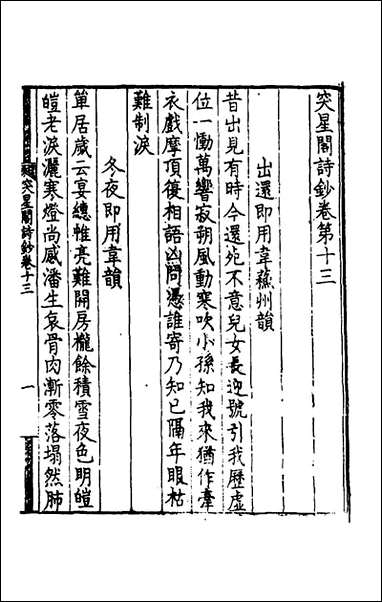 突星閣詩鈔卷第十三
出還即用韋蘇州韻
昔出見有時今還宛不意兒女長迎號引我歷虛
位一慟萬響寂朔風動寒吹小孫知我來猶作牽
衣戲摩頂復相語凶問憑誰寄乃知已隔年眼枯
難制淚
冬夜即用韋韻
單居歲云宴繐帷亮難開房櫳餘積雪夜色明皚
皚老淚灑寒燈尚感潘生哀骨肉漸零落塌然肺
突星閣詩鈔卷十三
一